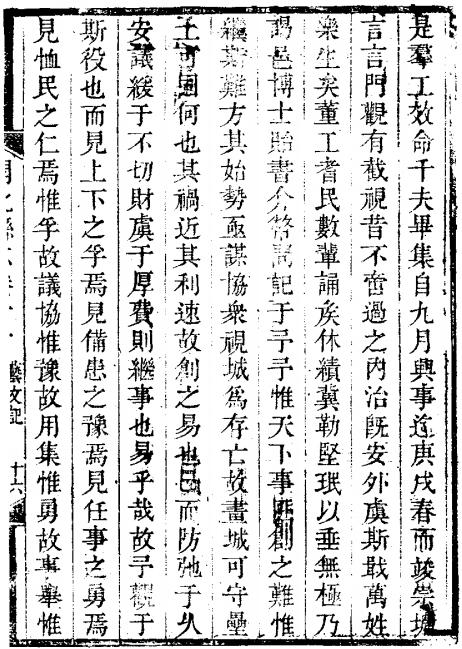 是羣工效命千夫畢集自九月興事迄庚戌春而竣崇墉
言言門觀有截視昔不啻過之内治既安外虞斯戢萬姓
樂生矣董工耆民數輩誦矦休績冀勒堅珉以垂無極乃
謁邑博士貽書介幣徵記于予予惟天下事匪創之難惟
繼斯難方其始勢亟謀協衆視城爲存亡故畫城可守壘
土可固何也其禍近其利速故創之易也已而防弛于久
安議緩于不切財虞于厚費則繼事也易乎哉故予觀于
斯役也而見上下之孚焉見備患之豫焉見任事之勇焉
見恤民之仁焉惟孚故議協惟豫故用集惟勇故事舉惟
藝文記 十六